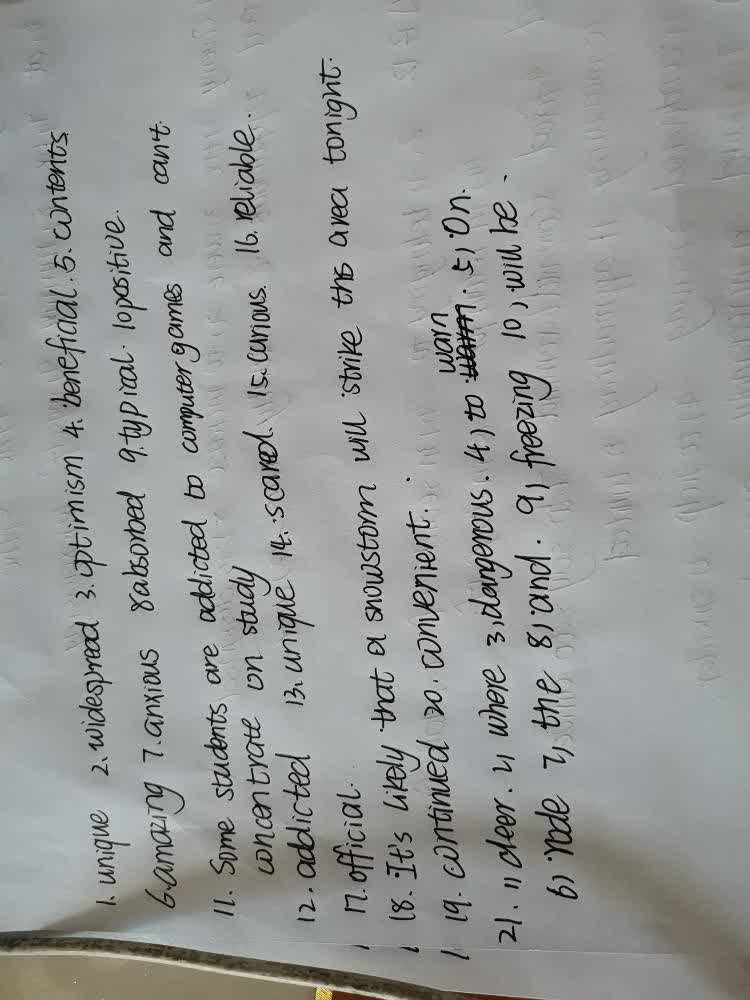 1. unique 2. widespread 3. optimism 4. beneficial. 5. contents
6. amazing 7. anxious 8 absorbed 9. typical. 10 positive.
11. Some students are addicted to computer games and can't
concentrate on study
12. addicted 13. unique 14. scared. 15. curious. 16. reliable.
17. official.
18. It's likely that a snowstorm will strike the area tonight.
19. continued 20. convenient.
21. 1) deer. 2) where 3) dangerous. 4) to warn. 5) On.
6) rode 7) the 8) and. 9) freezing 10) will be.